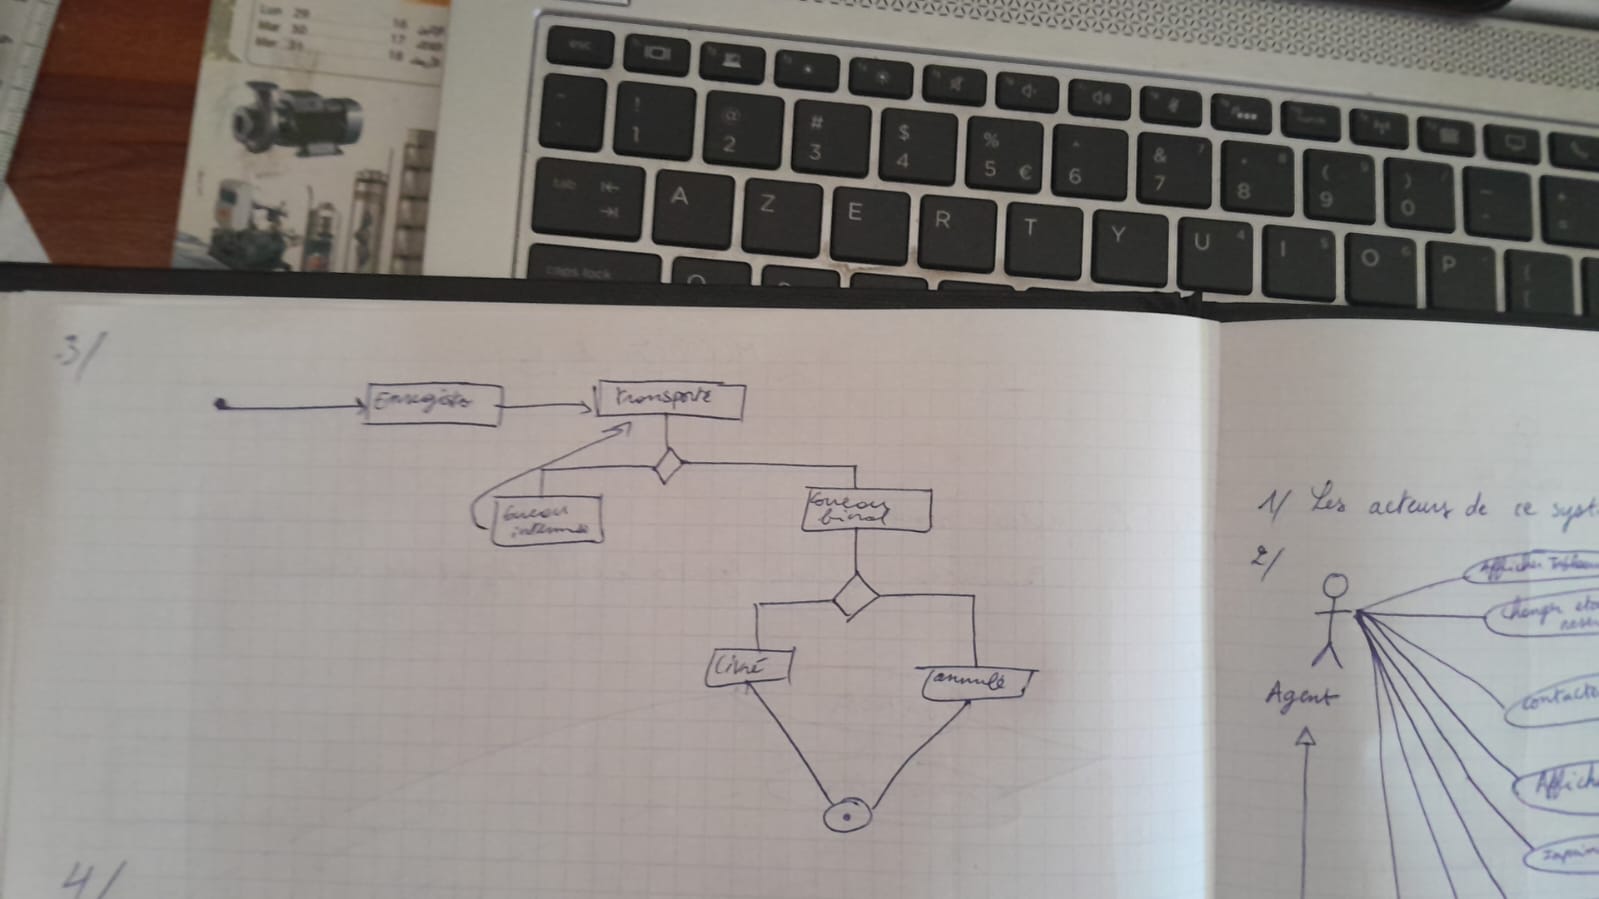 Lun 29
Mar 30
Mer 31
16
17
18
esc
!
1
@
2
#
3
$
4
%
5 €
^
6
& 7
7
* 8
8
( 9
9
) /
0
tab
A
Z
E
R
T
Y
U 4
I 5
O 6
P
caps lock
3/
Enregistré
transporté
bureau
bureau
final
livré
annulé
4/
1/ Les acteurs de ce syst
2/
Afficher
changer
Agent
contacte
Affich
Imprim